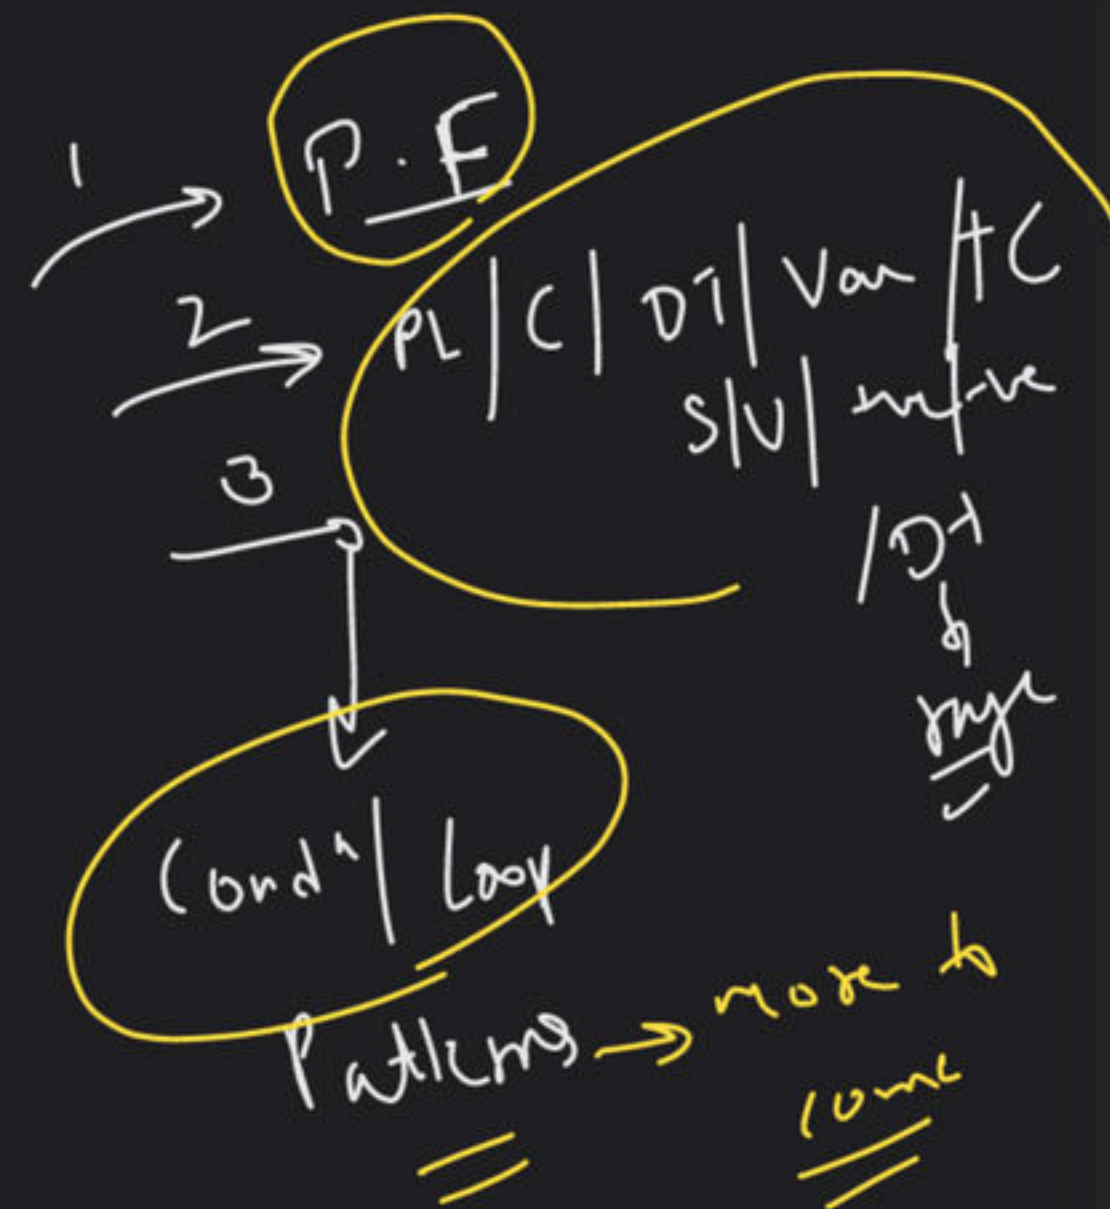 1
P.F
2
PL / C / DT / Var / TC
S/U / +ve/-ve
3
/ DT
↓
range
Condn / Loop
Patterns → more to
come